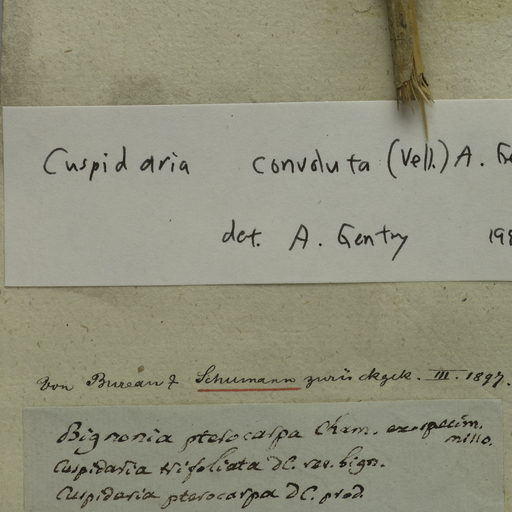 Cuspidaria convoluta (Vell.) A. Ge
det. A. Gentry 198
Von Bureau & Schumann zurückgek. III. 1897.
Bignonia pterocarpa Cham. ex specim.
nillo.
Cuspidaria trifoliata DC. var. bign.
Cuspidaria pterocarpa DC. prod.